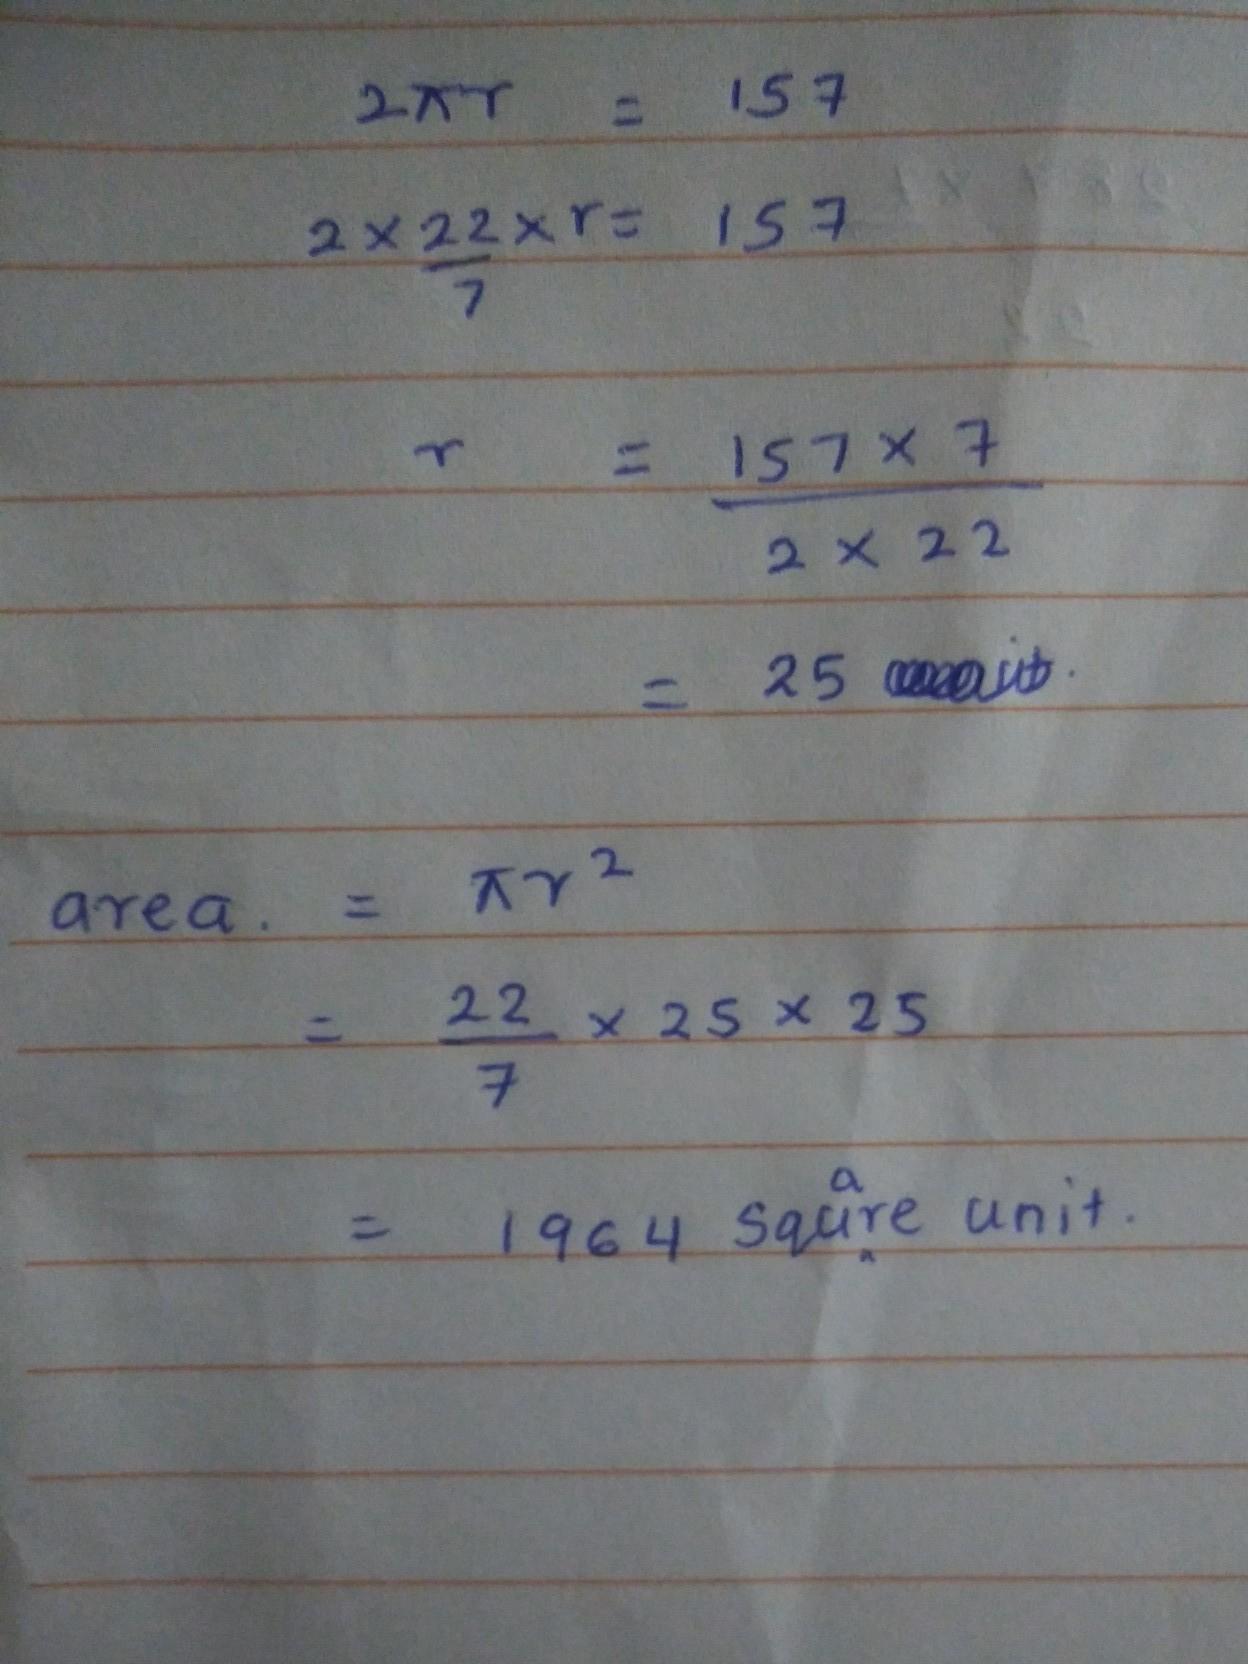 2πr = 157
2 × 22/7 × r = 157
r = 157 × 7 / 2 × 22
= 25
area. = πr²
= 22/7 × 25 × 25
= 1964 square unit.